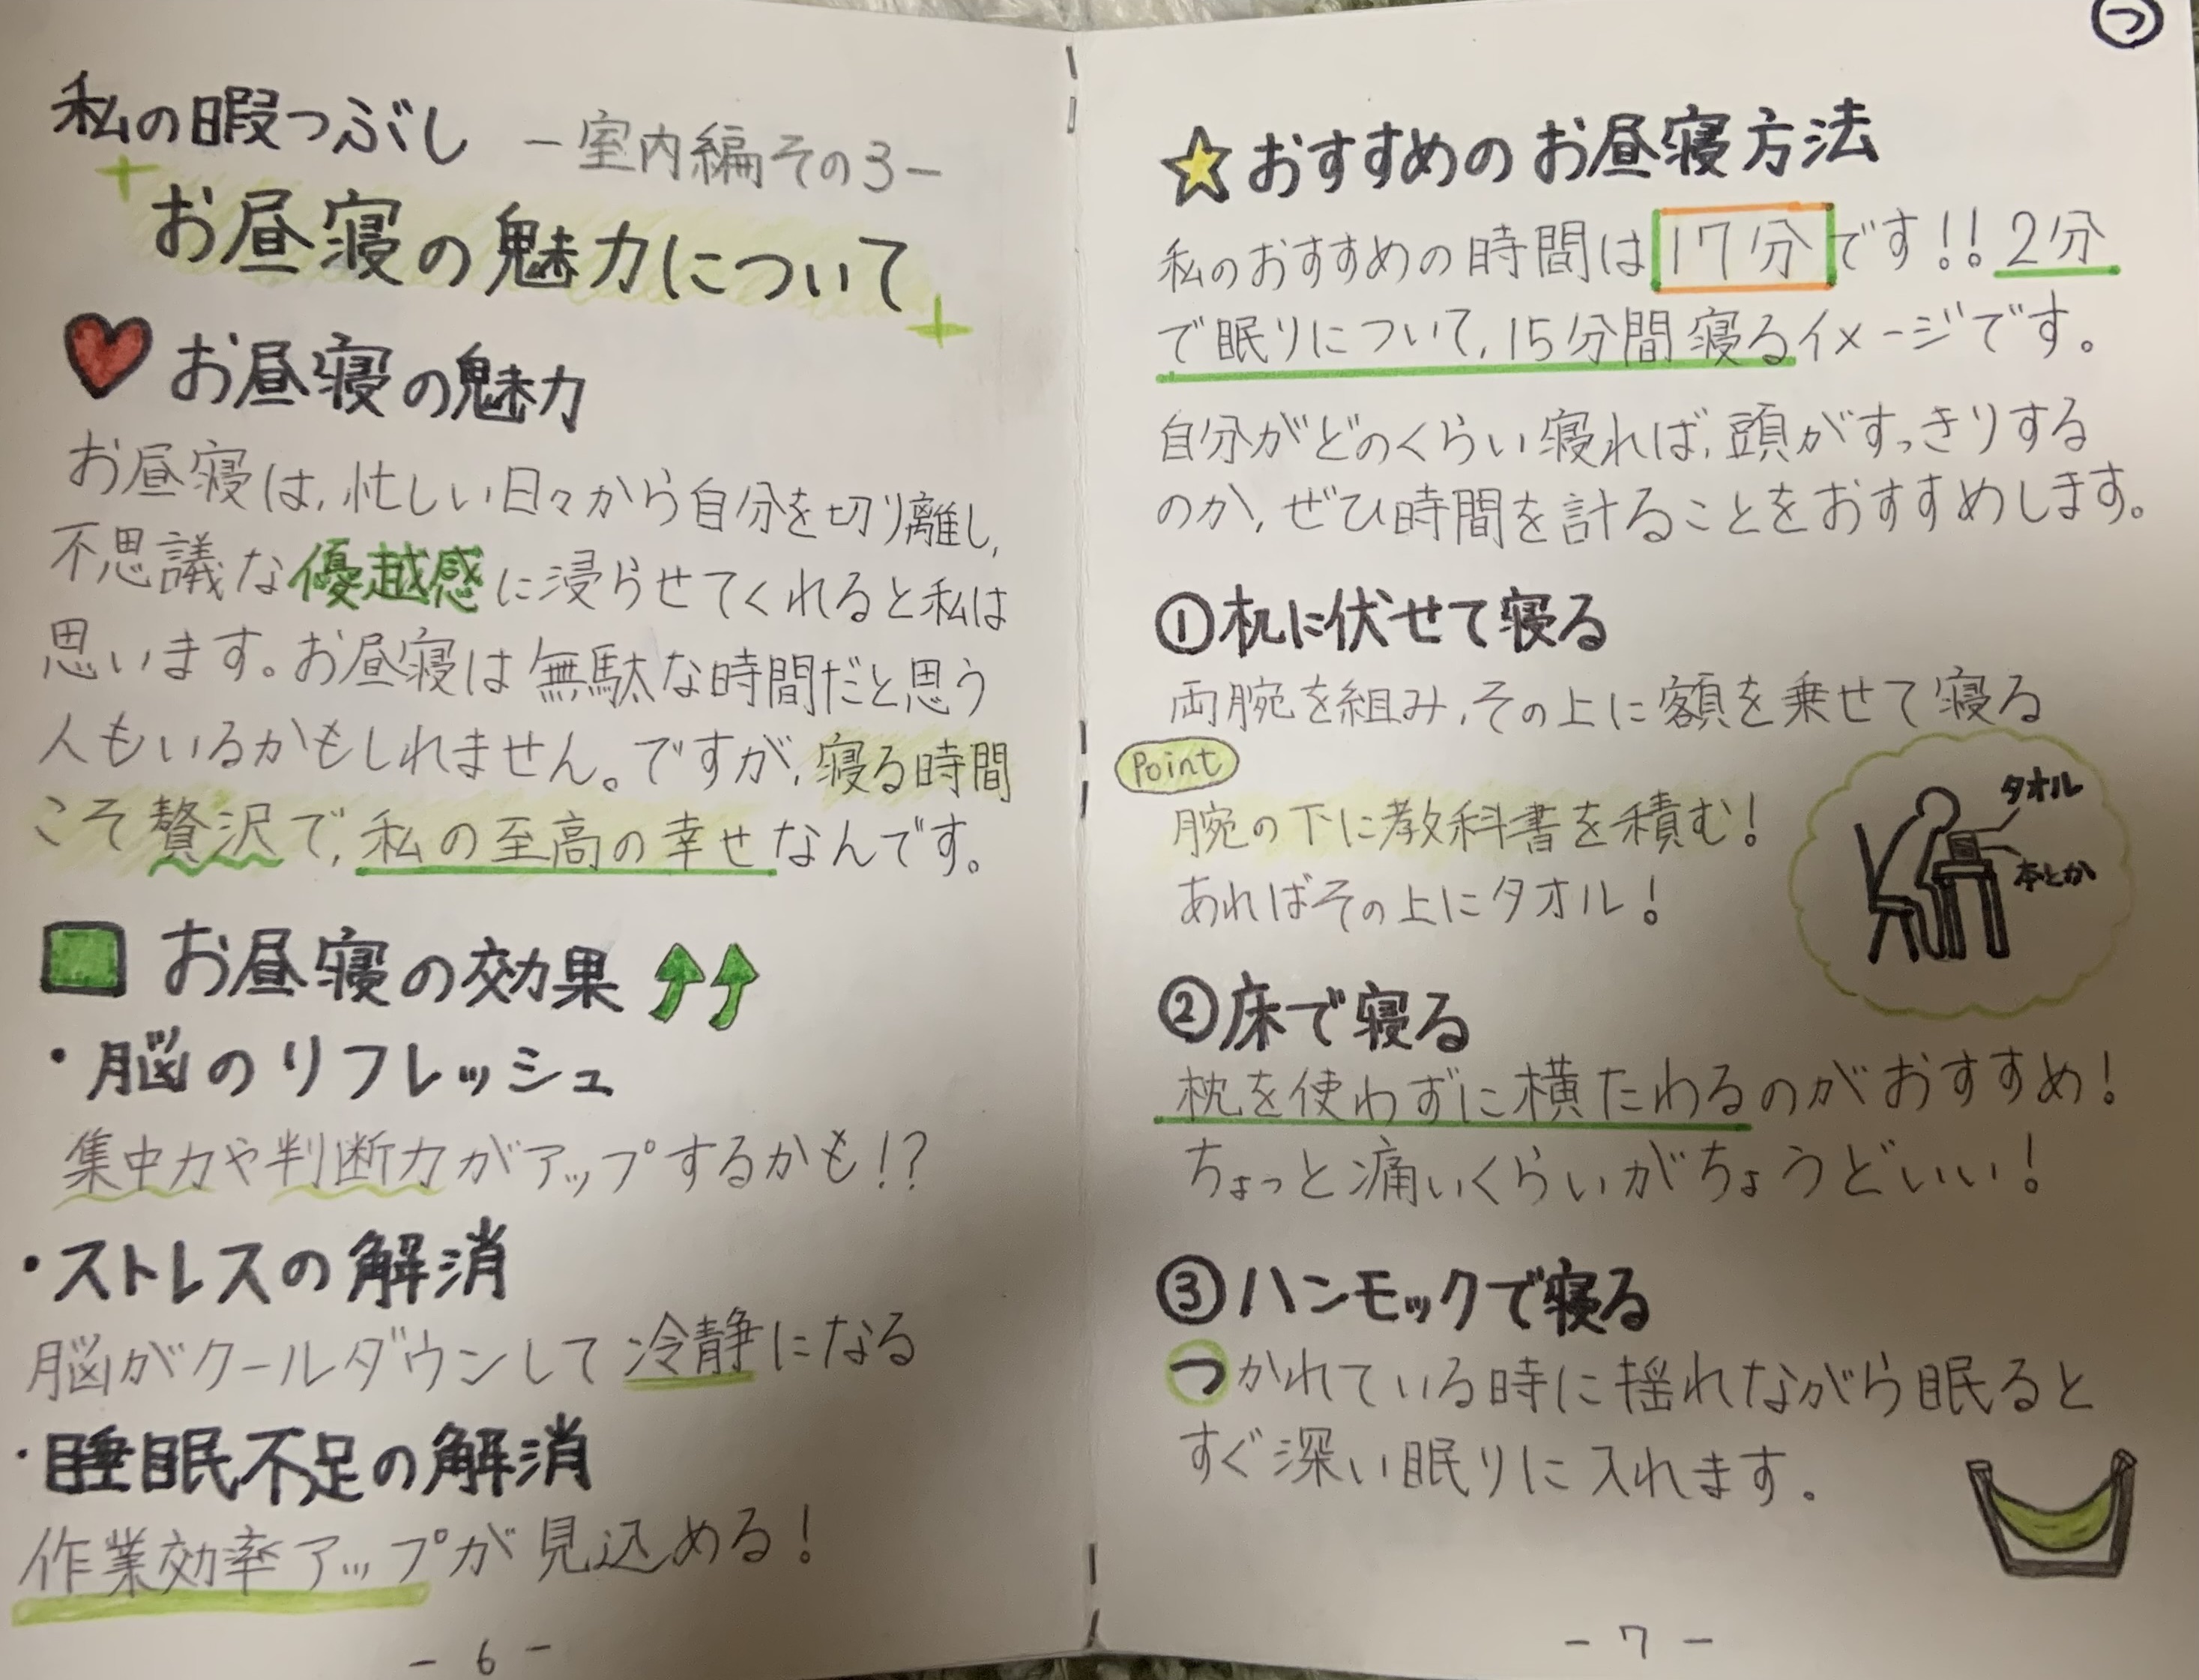 私の暇つぶし －室内編その3－
お昼寝の魅力について
お昼寝の魅力
お昼寝は、忙しい日々から自分を切り離し、
不思議な優越感に浸らせてくれると私は
思います。お昼寝は無駄な時間だと思う
人もいるかもしれません。ですが、寝る時間
こそ贅沢で、私の至高の幸せなんです。
お昼寝の効果
・脳のリフレッシュ
集中力や判断力がアップするかも!?
・ストレスの解消
脳がクールダウンして冷静になる
・睡眠不足の解消
作業効率アップが見込める！
－6－
つ
おすすめのお昼寝方法
私のおすすめの時間は17分です!!2分
で眠りについて、15分間寝るイメージです。
自分がどのくらい寝れば、頭がすっきりする
のか、ぜひ時間を計ることをおすすめします。
①机に伏せて寝る
両腕を組み、その上に額を乗せて寝る
Point
腕の下に教科書を積む！
あればその上にタオル！
タオル
本とか
②床で寝る
枕を使わずに横たわるのがおすすめ！
ちょっと痛いくらいがちょうどいい！
③ハンモックで寝る
つかれている時に揺れながら眠ると
すぐ深い眠りに入れます。
－7－